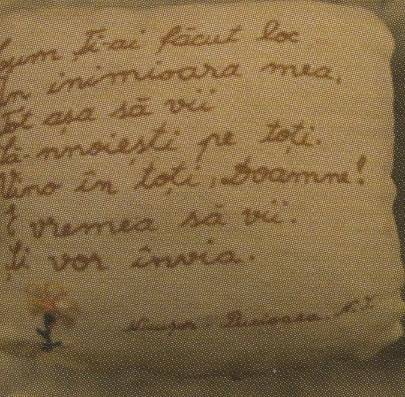 cum Ți-ai făcut loc
În inimioara mea,
Tot așa să vii
Să-nnoiești pe toți.
Vino în toți, Doamne!
E vremea să vii.
Și vor învia.
Pucioasa - N.I.